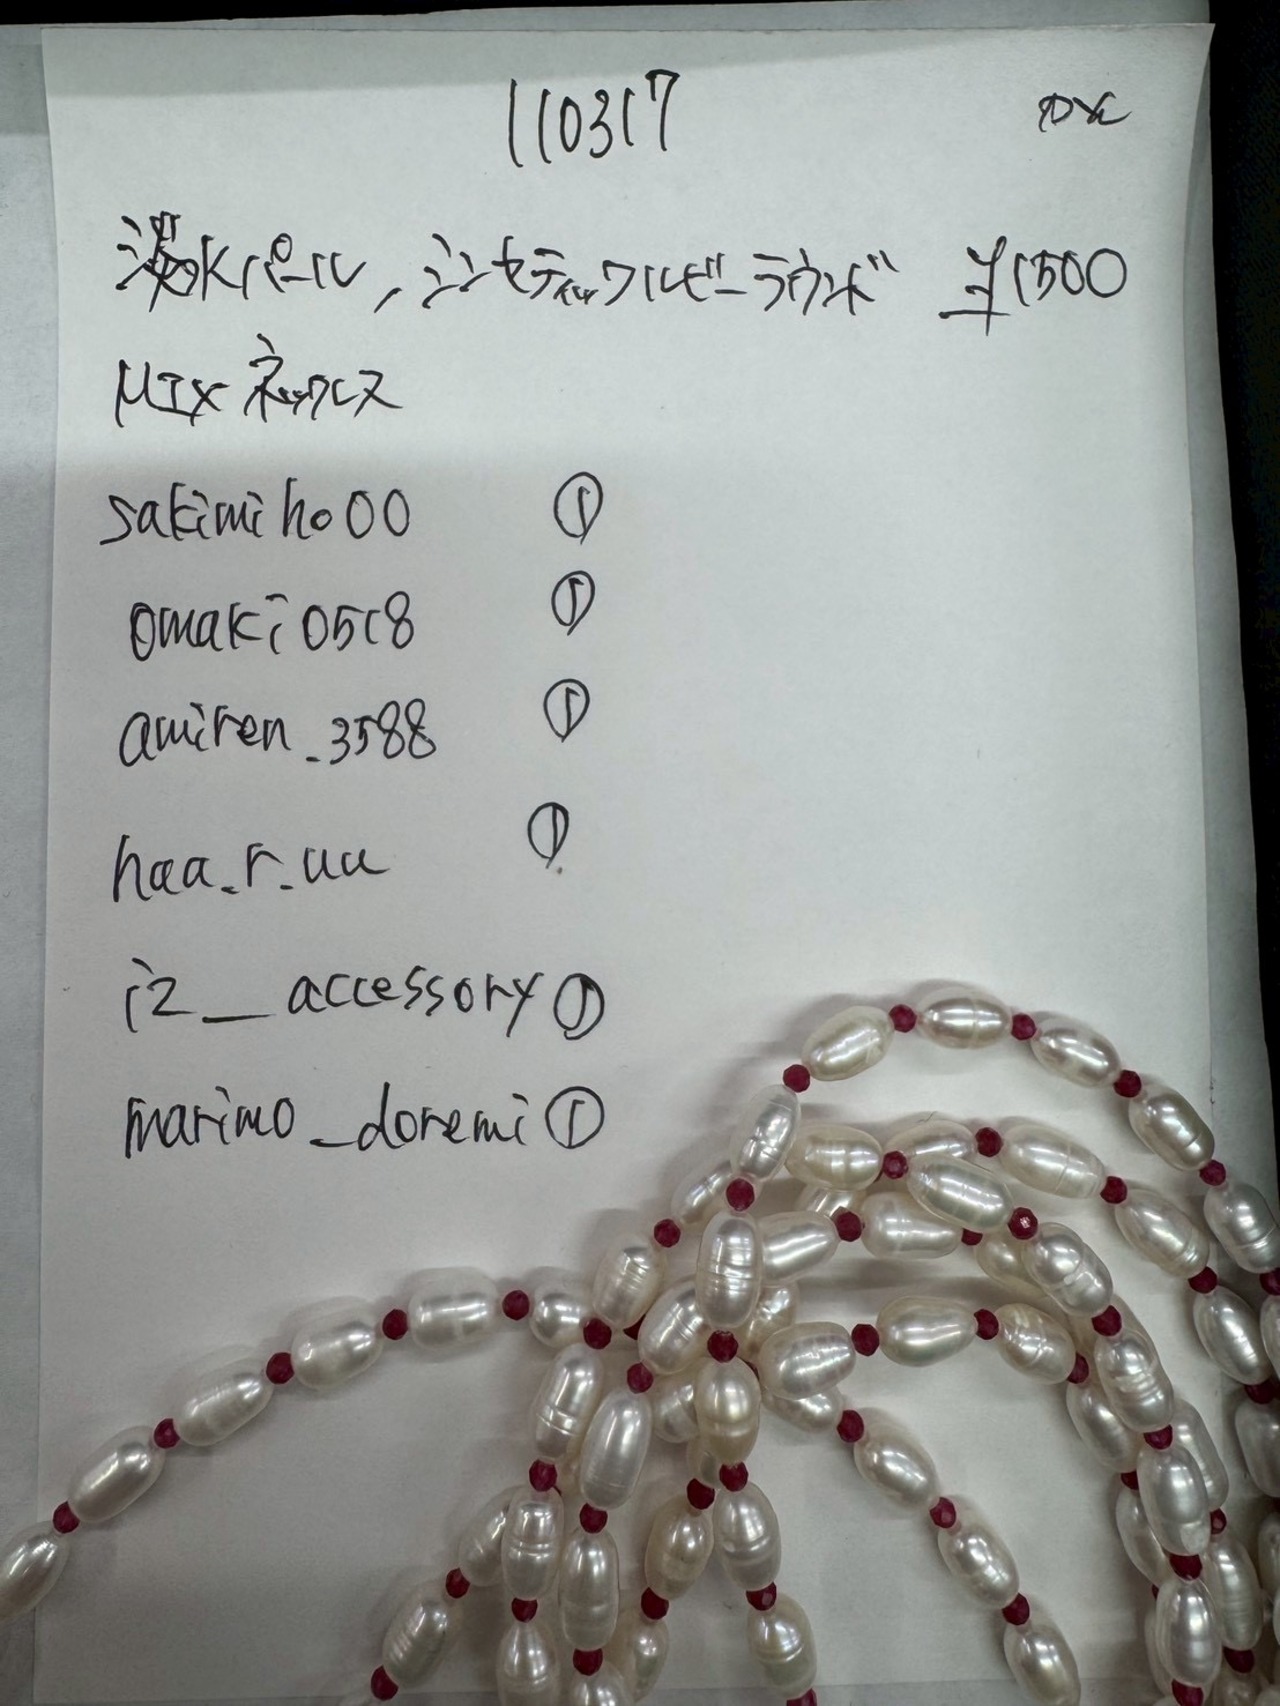 110317
淡水パール、シンセティックルビーラウンド ¥1500
MIX ネックレス
sakimiho00 ①
omaki0518 ①
amiren_3588 ①
haa_r_uu ①
i2__accessory ①
marimo_doremi ①